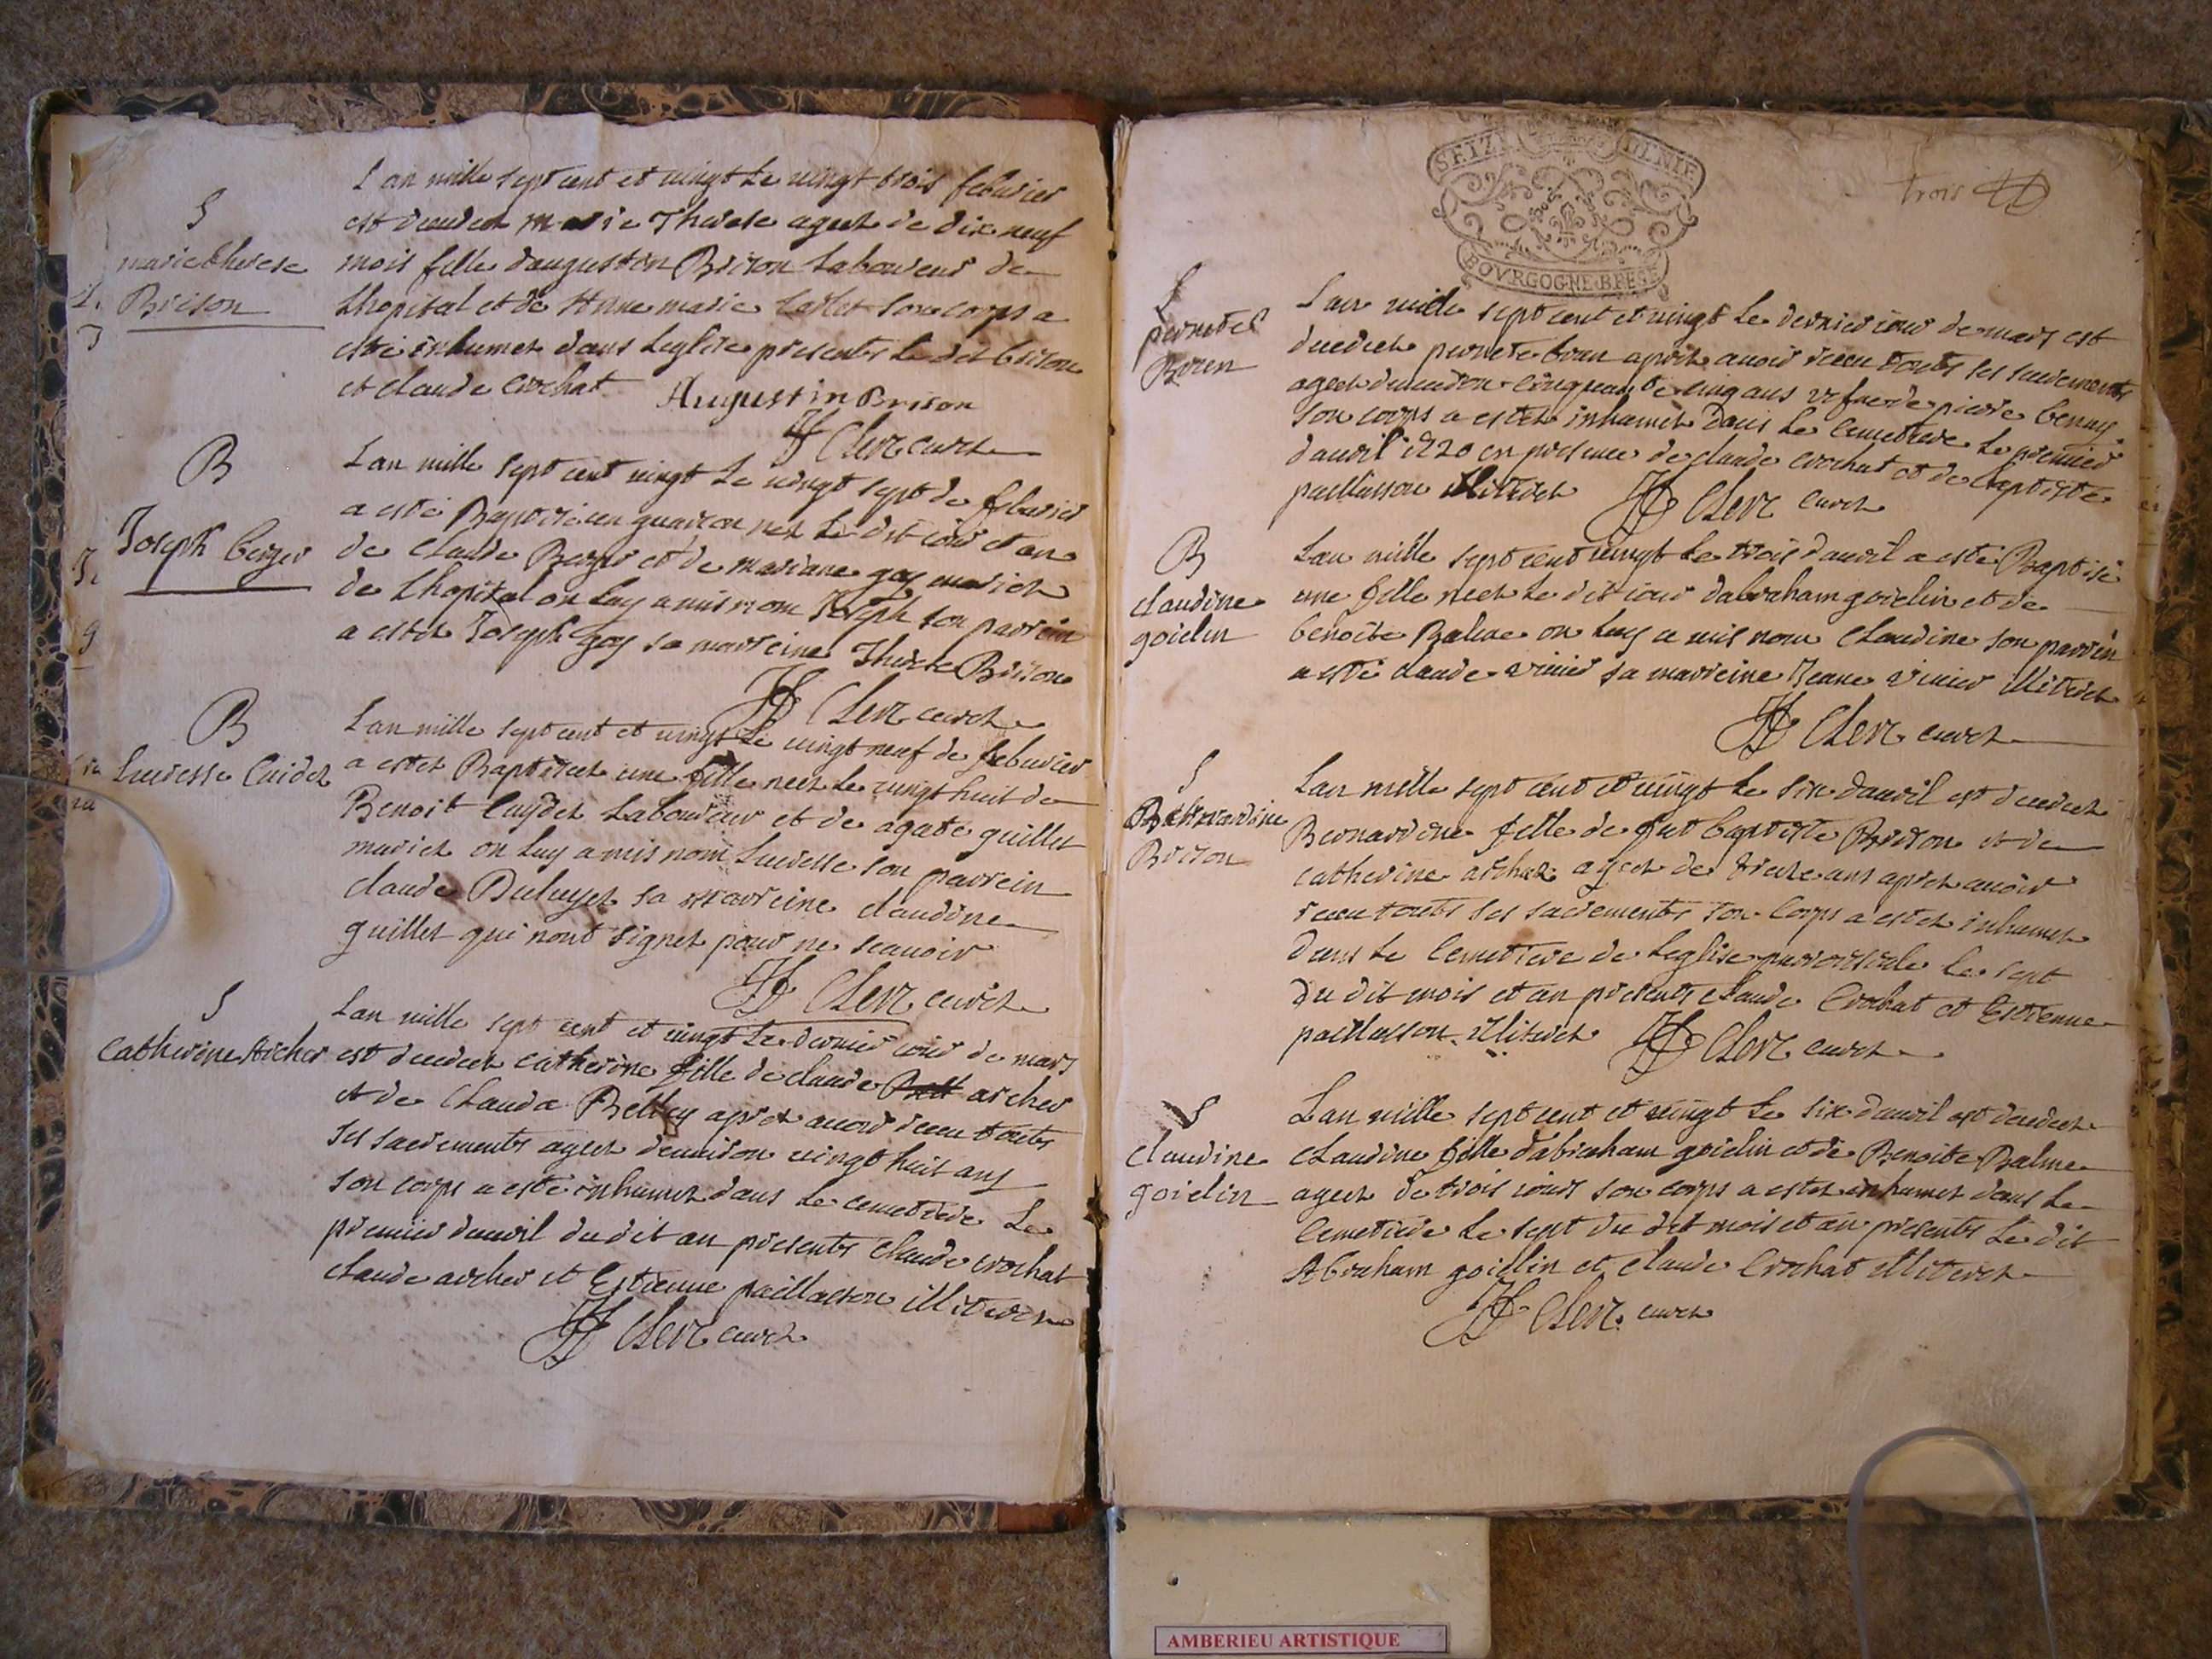 S
marie therese
Brison
L an mille sept cent et vingt le vingt trois febvrier
est decedeet marie Therese ageet de dix neuf
mois fille daugustin Brison Laboureur de
Lhopital et de Anne marie son corps a
esté inhumet dans leglise presents le dit brison
et claude crochat
Augustin Brison
Clerc curet
B
Joseph berger
Lan mille sept cent vingt le vingt sept de febvrier
a esté Baptisé un guarcon net le dit iour et an
de claude Berger et de mariane goy mariet
de Lhopital on luy a mis nom Joseph son parrein
a estet Joseph goy sa marreine Therese Brison
Clerc curet
B
Lucresse Cuidet
Lan mille sept cent et vingt le vingt neuf de febvrier
a estet Baptiseet une fille neet le vingt huit de
Benoit Cuydet Laboureur et de agate guillet
mariet on luy a mis nom Lucresse son parrein
claude sa marreine claudine
guillet qui nont signet pour ne scauoir
Clerc curet
S
Catherine Archer
Lan mille sept cent et vingt le dernier iour de mars
est decedeet catherine fille de claude archer
et de Clauda Belley apret auoir receu touts
ses sacrements ageet denuiron vingt huit ans
son corps a esté inhumet dans le cemetiere le
premier dauril du dit an presents claude crochat
claude archer et Estienne paillasson illiteret
Clerc curet
SEIZE
BOVRGOGNE BRESSE
trois
S
pernete
Lan mille sept cent et vingt le dernier iour de mars est
decedeet pernete apret auoir receu touts ses sacrements
ageet denuiron cinquante cinq ans vefue de pierre
son corps a estet inhumet dans le cemetiere le premier
dauril 1720 en presence de claude crochat et de baptiste
paillasson illiteret Clerc curet
B
claudine
goiclin
Lan mille sept cent vingt le trois dauril a esté Baptisé
une fille neet le dit iour dabraham goiclin et de
benoite Balme on luy a mis nom claudine son parrein
a esté claude vinier sa marreine Jeane vinier illiteret
Clerc curet
S
Bernardine
Brison
Lan mille sept cent et vingt le six dauril est decedeet
Bernardine fille de fut baptiste Brison et de
catherine archer ageet de treize ans apret auoir
receu touts ses sacrements son corps a estet inhumet
dans le cemetiere de leglise parroissiale le sept
du dit mois et an presents claude Crochat et Estienne
paillasson illiteret Clerc curet
S
claudine
goiclin
Lan mille sept cent et vingt le six dauril est decedeet
claudine fille dabraham goiclin et de Benoite Balme
ageet de trois iours son corps a estet inhumet dans le
cemetiere le sept du dit mois et an presents le dit
Abraham goiclin et claude Crochat illiteret
Clerc curet
AMBERIEU ARTISTIQUE